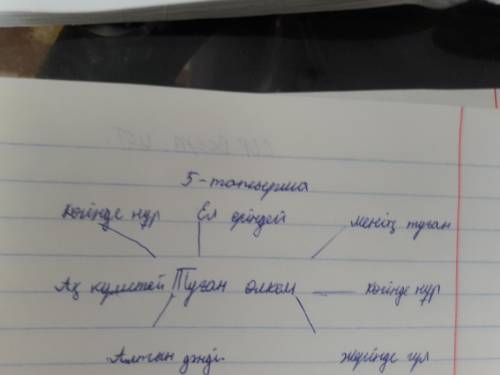 5-тапсырма
көгінде нұр Ел еріндей менің туған
Ақ күмістей Туған өлкем көгінде нұр
Алтын дәнді жерінде гүл